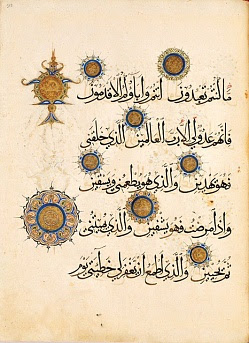 مَا كُنْتُمْ تَعْبُدُونَ أَنْتُمْ وَآبَاؤُكُمُ الْأَقْدَمُونَ
فَإِنَّهُمْ عَدُوٌّ لِي إِلَّا رَبَّ الْعَالَمِينَ الَّذِي خَلَقَنِي
فَهُوَ يَهْدِينِ وَالَّذِي هُوَ يُطْعِمُنِي وَيَسْقِينِ
وَإِذَا مَرِضْتُ فَهُوَ يَشْفِينِ وَالَّذِي يُمِيتُنِي
ثُمَّ يُحْيِينِ وَالَّذِي أَطْمَعُ أَنْ يَغْفِرَ لِي خَطِيئَتِي يَوْمَ